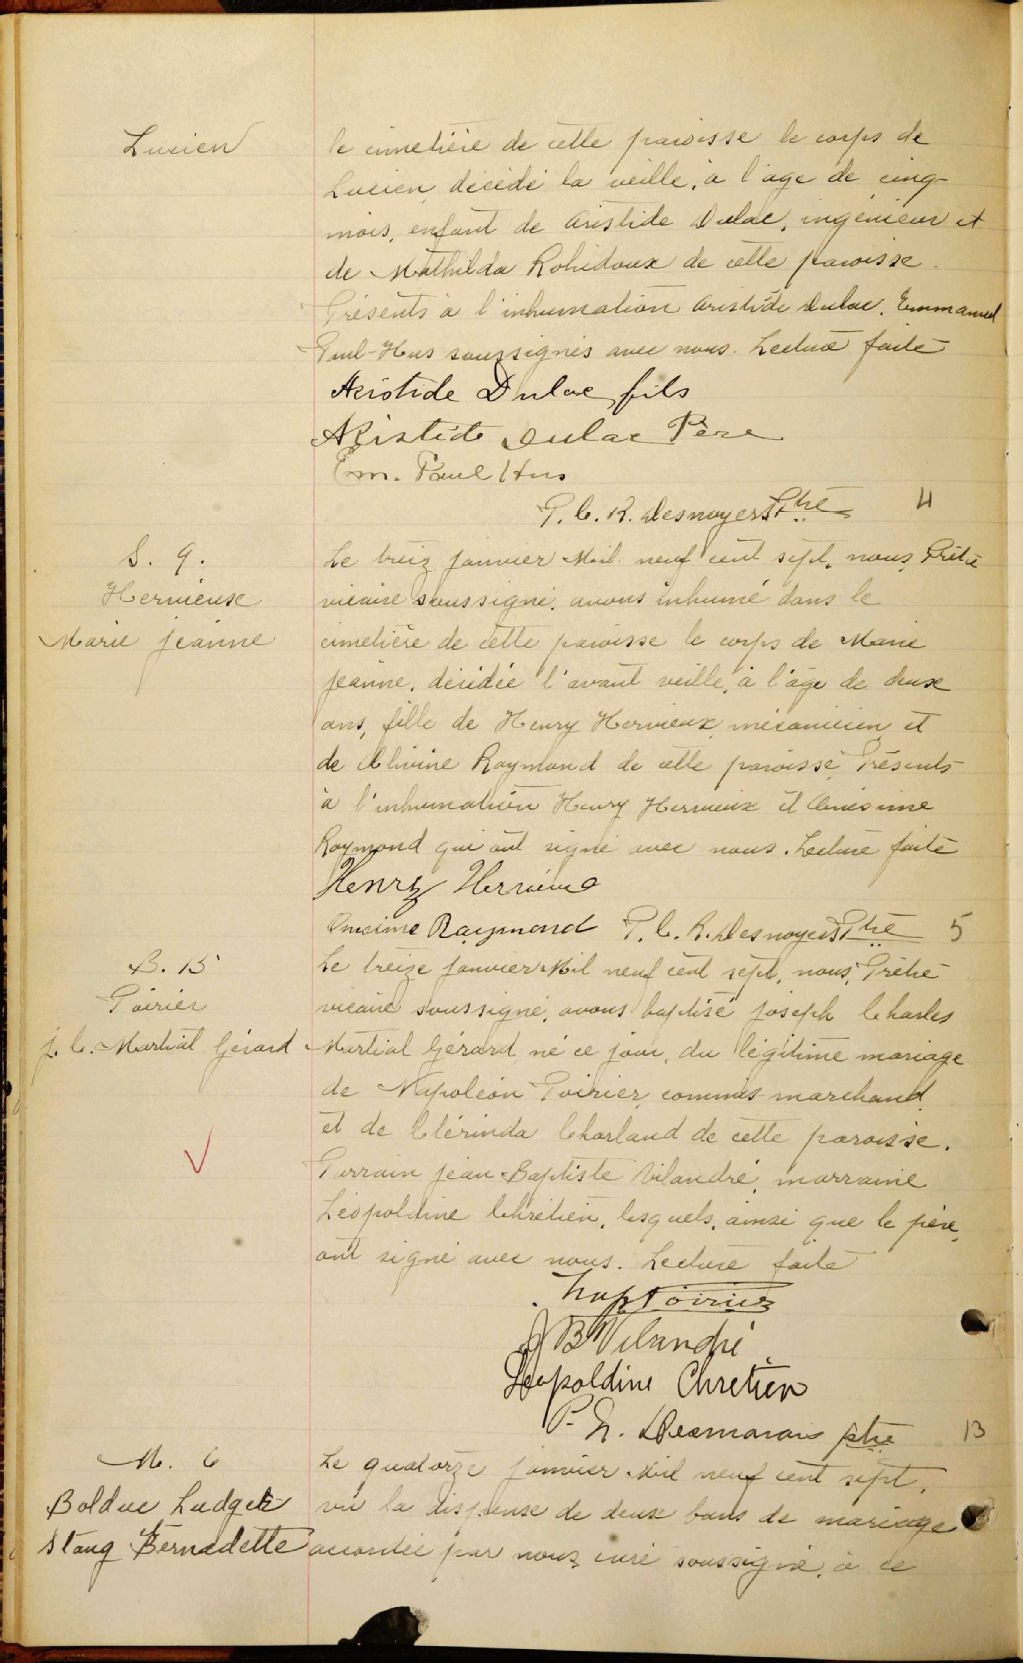 Lucien
le cimetière de cette paroisse le corps de
Lucien, décédé la veille, à l'âge de cinq
mois, enfant de Aristide Dulac, ingénieur et
de Mathilda Robidoux de cette paroisse.
Présents à l'inhumation Aristide Dulac, Emmanuel
Paul-Hus soussignés avec nous. Lecture faite
Aristide Dulac fils
Aristide Dulac Père
Em. Paul Hus
P. C. R. Desnoyers Ptre 4
S. 9.
Hervieuse
Marie jeanne
Le treiz janvier Mil neuf cent sept, nous, Prêtre
vicaire soussigné, avons inhumé dans le
cimetière de cette paroisse le corps de Marie
jeanne, décédée l'avant veille, à l'âge de deux
ans, fille de Henry Hervieux, mécanicien et
de Olivine Raymond de cette paroisse. Présents
à l'inhumation Henry Hervieux et Onésime
Raymond qui ont signé avec nous. Lecture faite
Henry Hervieux
Onésime Raymond P. C. R. Desnoyers Ptre 5
B. 15
Poirier
j. C. Martial Gérard
Le treize janvier Mil neuf cent sept, nous, Prêtre
vicaire soussigné, avons baptisé joseph Charles
Martial Gérard, né ce jour, du légitime mariage
de Napoléon Poirier, commis-marchand,
et de Clérinda Charland de cette paroisse.
Parrain jean-Baptiste Vilandré, marraine
Léopoldine Chrétien, lesquels, ainsi que le père,
ont signé avec nous. Lecture faite
Nap Poirier
J B Vilandré
Léopoldine Chrétien
P. E. Desmarais ptre 13
M. 6
Bolduc Ludger
Stang Bernadette
Le quatorze janvier Mil neuf cent sept,
vu la dispense de deux bans de mariage
accordée par nous, curé soussigné, à ce